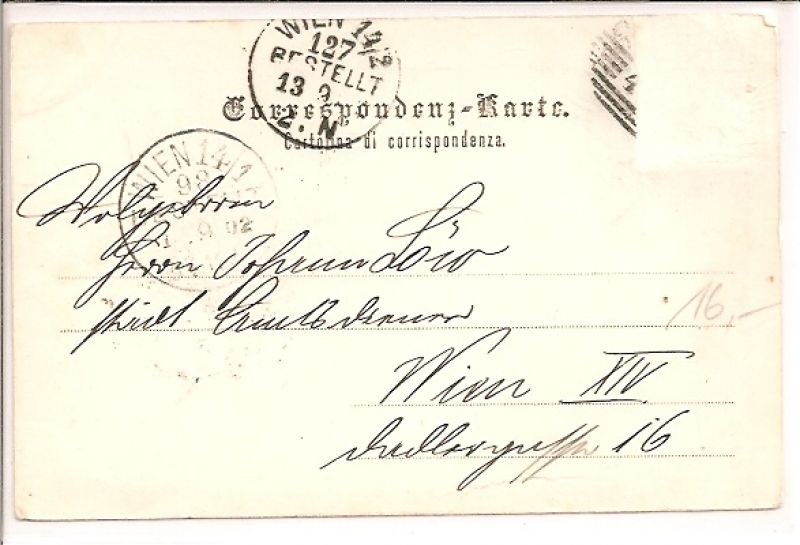 WIEN 14/2
127
BESTELLT
13 9
2. N
Correspondenz-Karte.
Cartolina di corrispondenza.
WIEN 14/1
9 02
Wolgeboren
Herrn Johann Löw
städt. Amtsdiener
Wien XIV
16
16,-